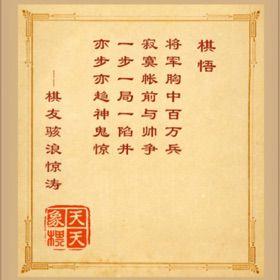 棋悟
将军胸中百万兵
寂寞帐前与帅争
一步一局一陷井
亦步亦趋神鬼惊
——棋友骇浪惊涛
天天象棋